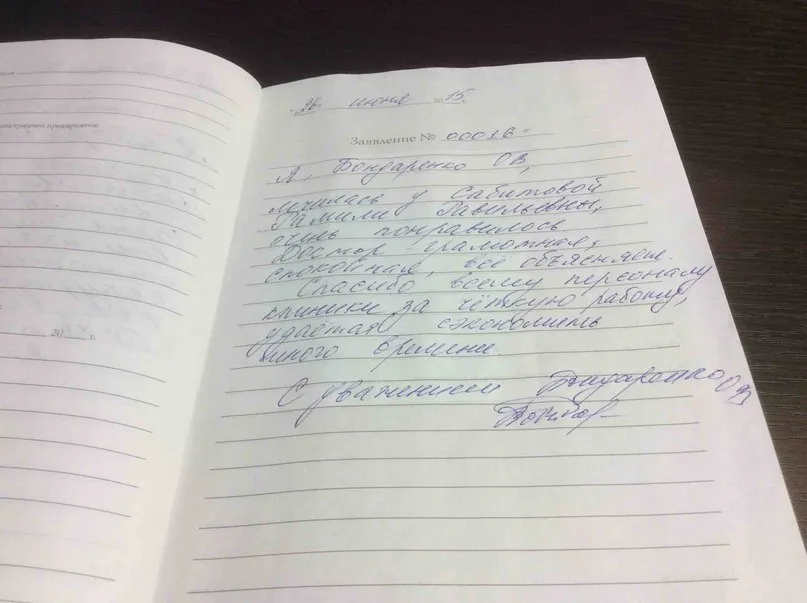 "26" июня 2015 г.
Заявление № 00026
Я, Бондаренко ОВ,
лечилась у Сабитовой
Рамили Равильевны,
очень понравилось
Доктор грамотная,
спокойная, всё объясняет.
Спасибо всему персоналу
клиники за чёткую работу,
удаётся сэкономить
много времени.
С уважением Бондаренко ОВ
20 г.